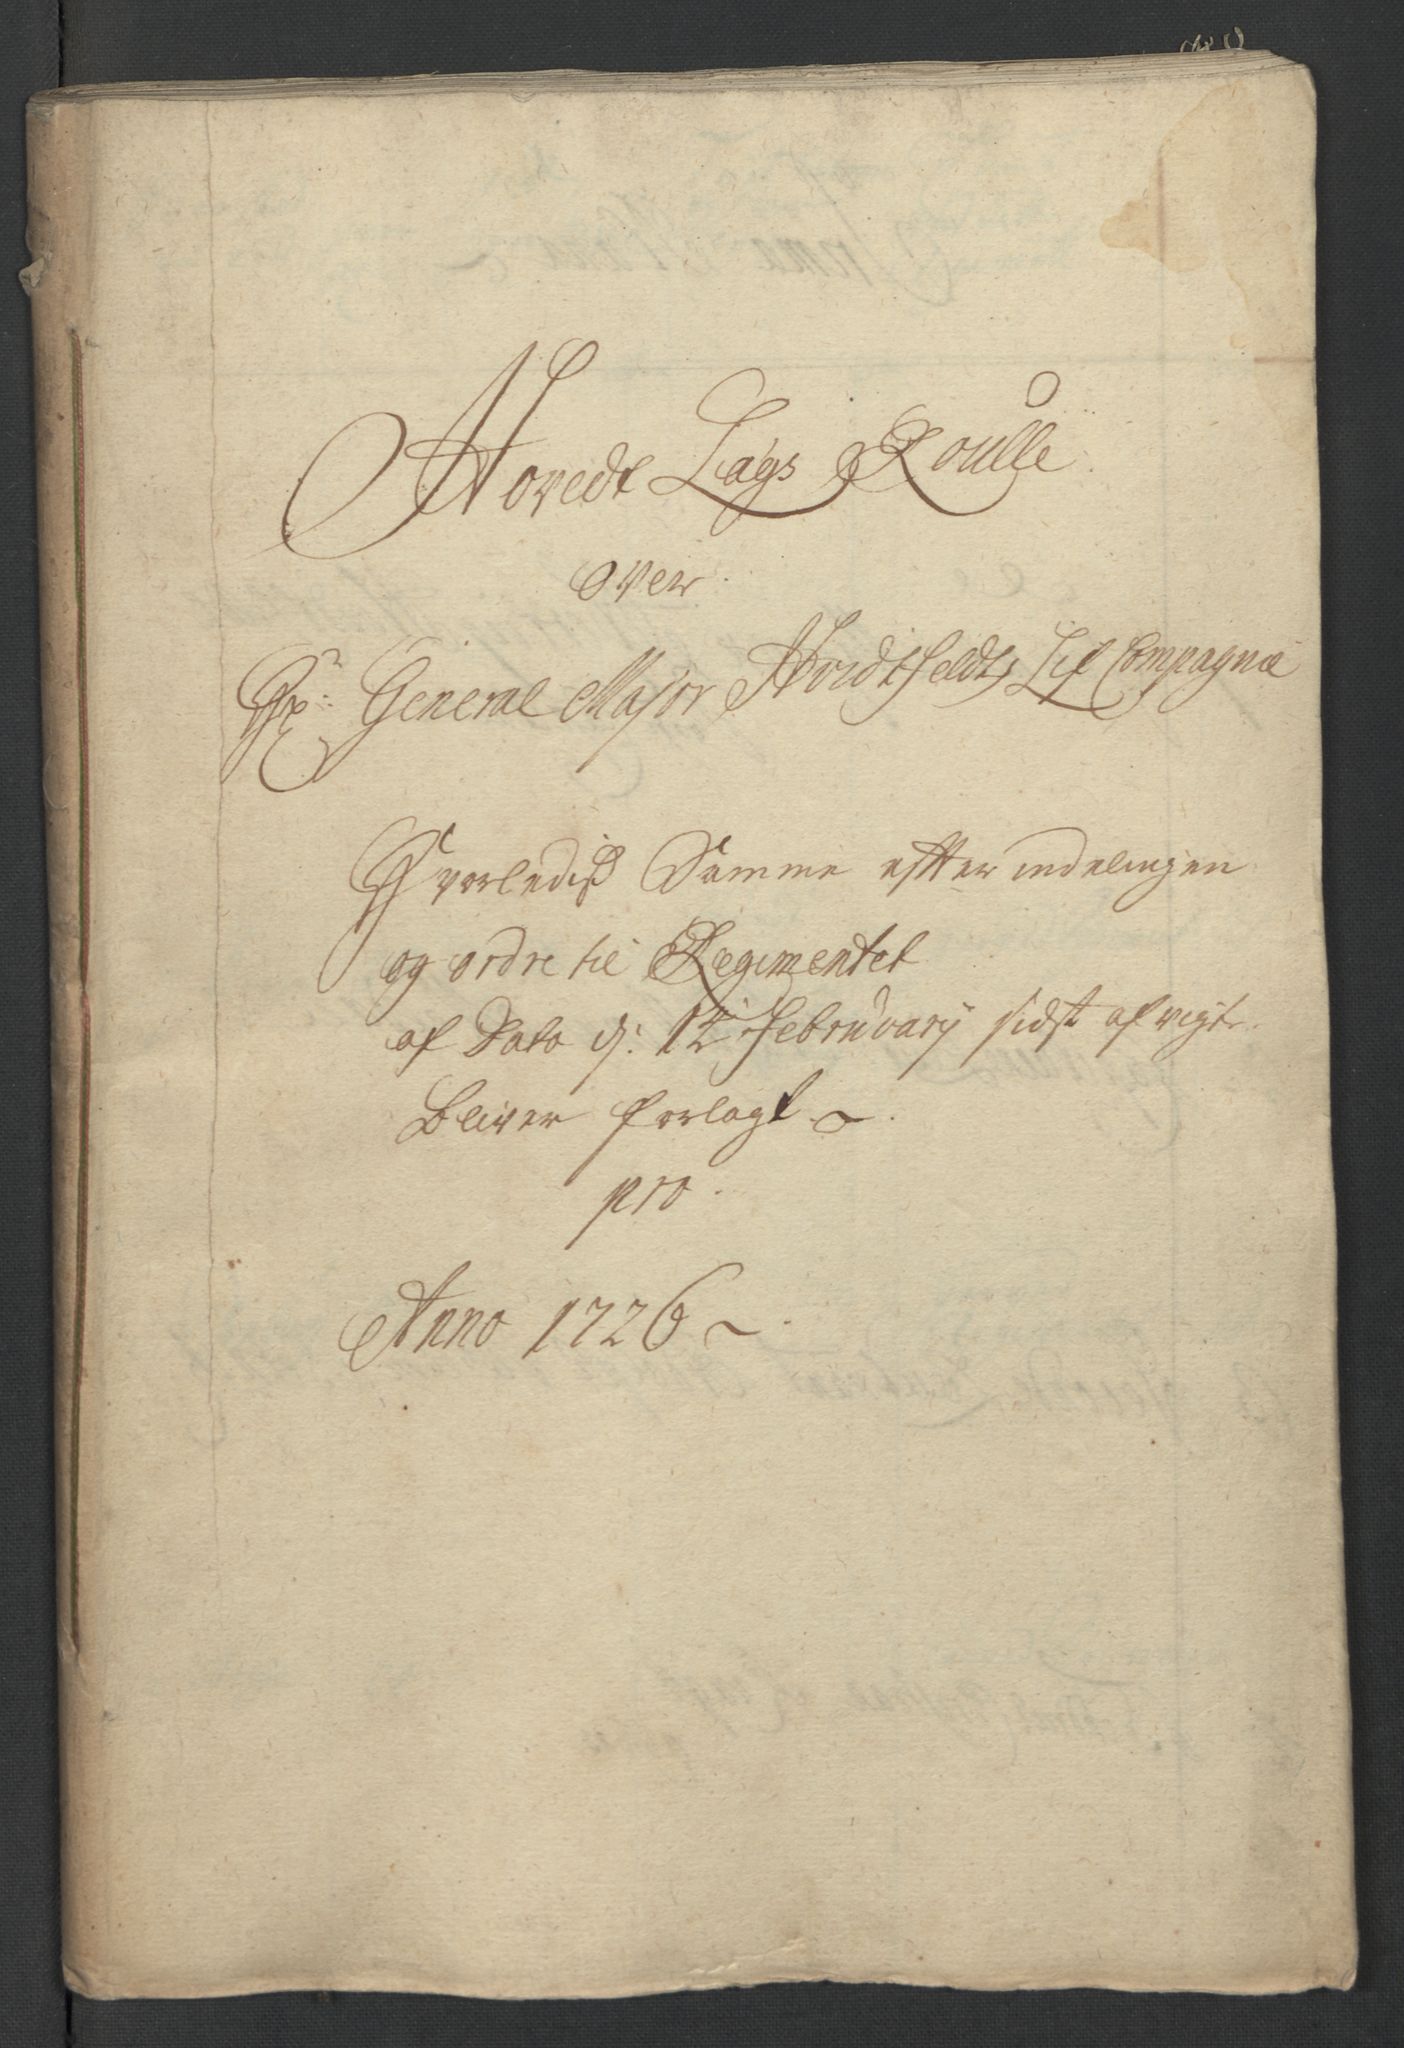 Hovedt Lægs Roulle
over
Hr: General Major Hvidtfeldts Lif Compagnie
Hvorledis Samme effter indelingen
og ordre til Regimentet
af Dato d: 12 Februarij sidst afvigt
bliver forlagt
pro
Anno 1726